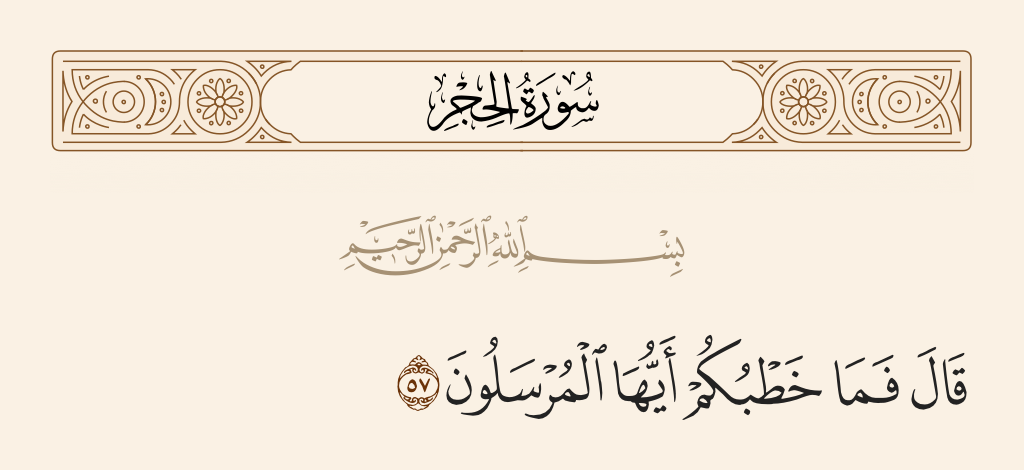 سُورَةُ الحِجْرِ
بِسْمِ ٱللَّهِ ٱلرَّحْمَٰنِ ٱلرَّحِيمِ
قَالَ فَمَا خَطْبُكُمْ أَيُّهَا ٱلْمُرْسَلُونَ ٥٧